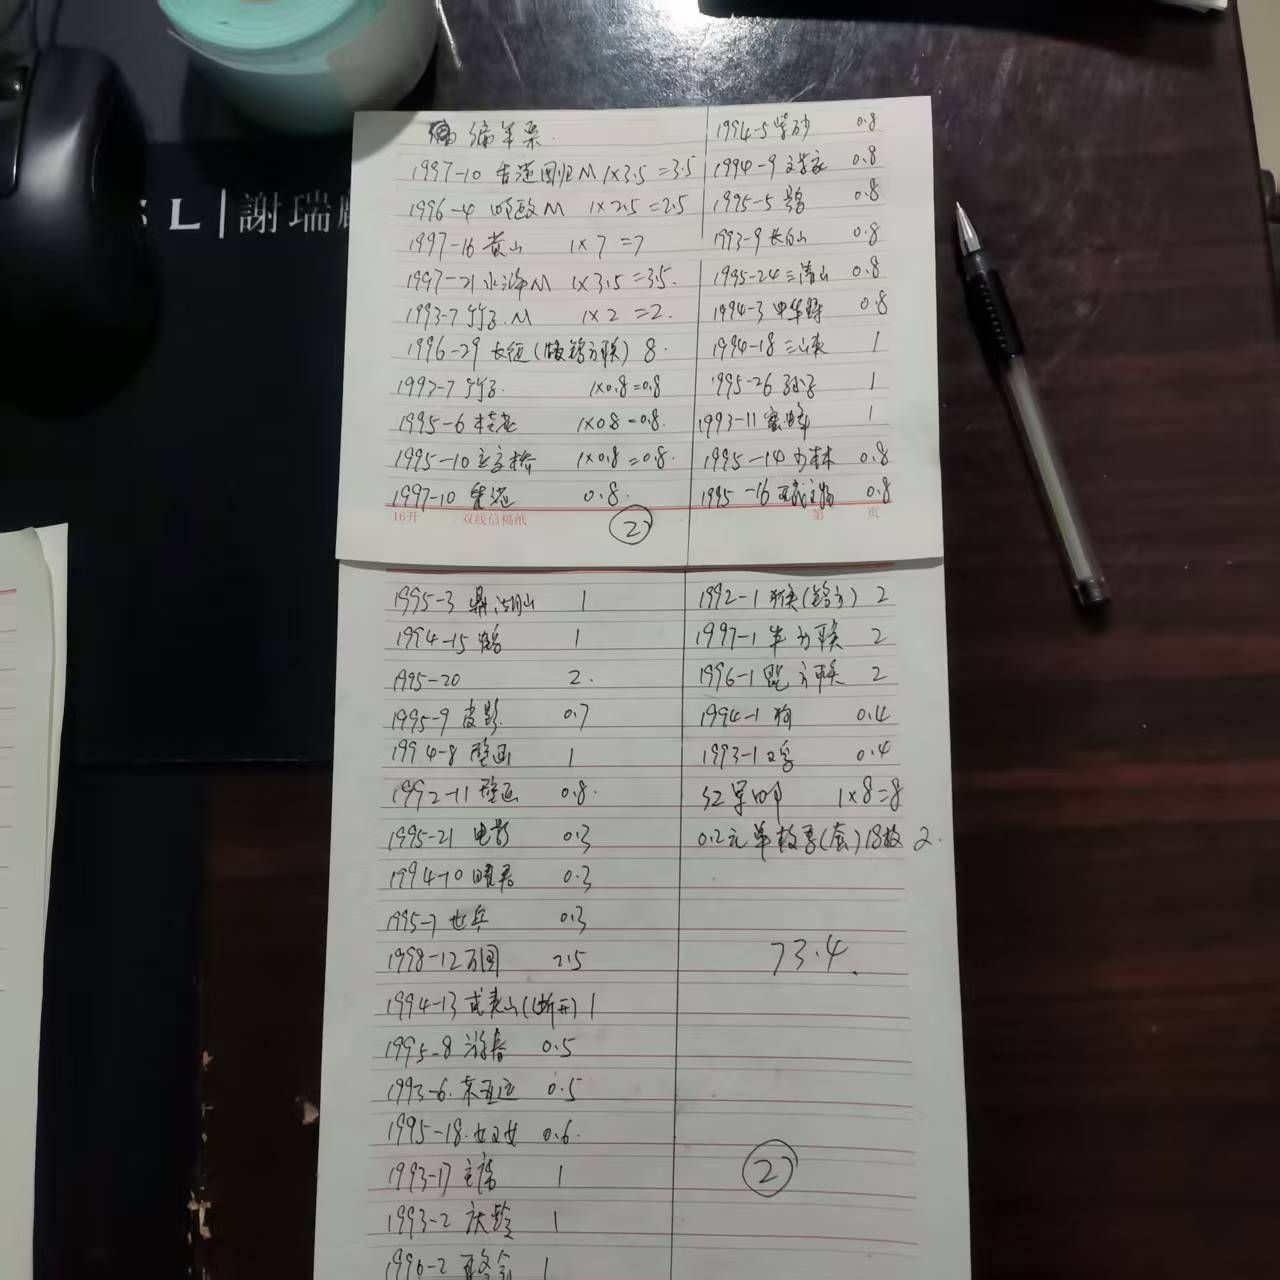 编年票.
1997-10 香港回归M 1×3.5=3.5
1996-4 邮政M 1×2.5=2.5
1997-16 黄山 1×7=7
1997-21 水浒M 1×3.5=3.5.
1993-7 竹子.M 1×2=2.
1996-29 长征(厂铭方联) 8.
1993-7 竹子. 1×0.8=0.8
1995-6 桂花 1×0.8=0.8.
1995-10 立交桥 1×0.8=0.8.
1997-10 香港 0.8.
16开 双线信稿纸
②
1994-5 紫砂 0.8
1994-9 文学家 0.8
1995-5 0.8
1993-9 长白山 0.8
1995-24 三清山 0.8
1994-3 中华鲟 0.8
1994-18 三峡 1
1995-26 孙子 1
1993-11 蜜蜂 1
1995-14 少林 0.8
1995-16 西藏文物 0.8
第 页
1995-3 鼎湖山 1
1994-15 鹤 1
1995-20 2.
1995-9 皮影. 0.7
1994-8 壁画 1
1992-11 壁画 0.8.
1995-21 电影 0.3
1994-10 昭君 0.3
1995-7 世乒 0.3
1998-12 万国 2.5
1994-13 武夷山(折开) 1
1995-8 游春 0.5
1993-6. 东亚运 0.5
1995-18. 世妇女 0.6.
1993-17 主席 1
1993-2 庆龄 1
1996-2 冬会 1
1992-1 猴(铭方) 2
1997-1 牛方联 2
1996-1 鼠方联 2
1994-1 狗 0.4
1993-1 鸡 0.4
红军邮 1×8=8
0.2元单枚票(套)18枚 2.
73.4.
②
SL|謝瑞